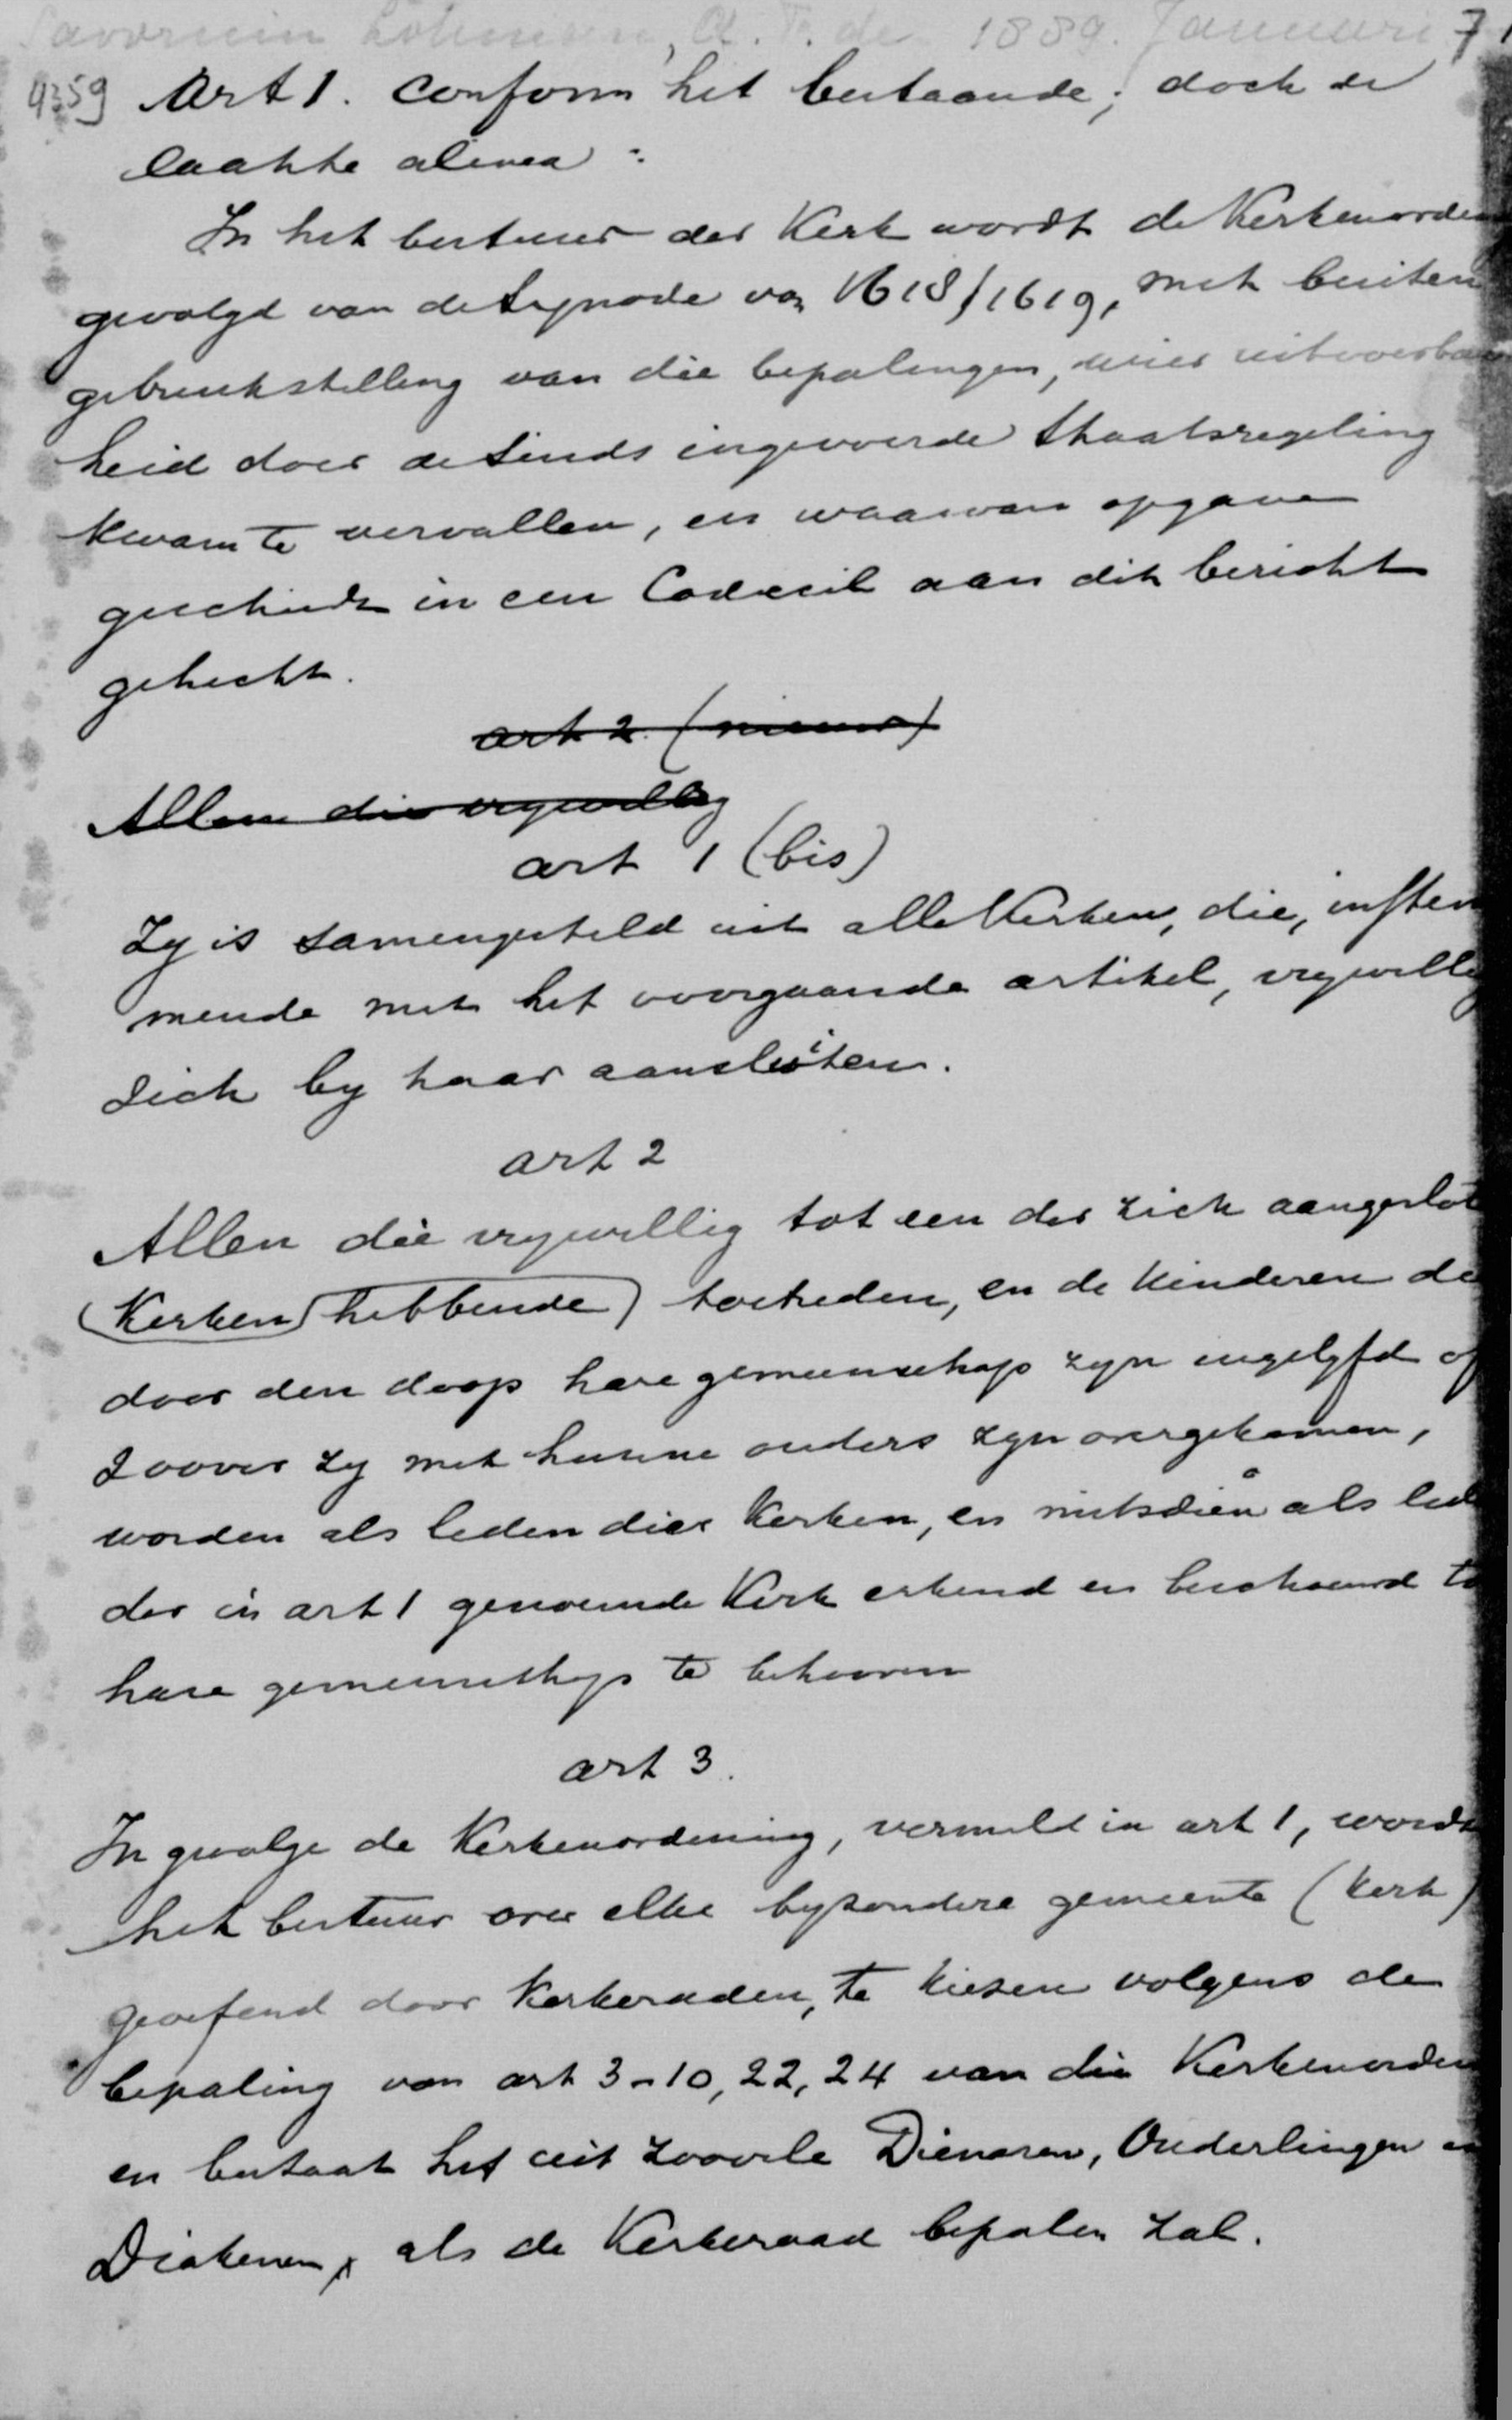 Savornin Lohman, A. F. de 1889. Januari 7
4359 Art 1. conform het bestaande; doch de
laatste alinea:
In het bestuur der Kerk wordt de Kerkenorden
gevolgd van de Synode van 1618/1619, met buiten
gebruikstelling van die bepalingen, wier uitvoerbaar
heid door de sinds ingevoerde Staatsregeling
kwam te vervallen, en waarvan opgave
geschiedt in een Codicil aan dit bericht
gehecht.
art 2. (nieuw)
Allen die vrywillig
art 1 (bis)
Zy is samengesteld uit alle Kerken, die, instem
mende met het voorgaande artikel, vrywillig
zich by haar aansluiten.
art 2
Allen die vrywillig tot een der zich aangeslot
(Kerken hebbende) toetreden, en de kinderen de
door den doop hare gemeenschap zyn ingelyfd of
zoover zy met hunne ouders zyn overgekomen,
worden als leden dier Kerken, en mitsdien als led
der in art 1 genoemde Kerk erkend en beschouwd to
hare gemeenschap te behooren
art 3.
In gevolge de Kerkenordening, vermeld in art 1, wordt
het bestuur over elke byzondere gemeente (Kerk)
geoefend door Kerkeraden, te kiezen volgens de
bepaling van art 3-10, 22, 24 van die Kerkenorden
en bestaat het uit zoovele Dienaren, Ouderlingen en
Diakenen, als de Kerkeraad bepalen zal.